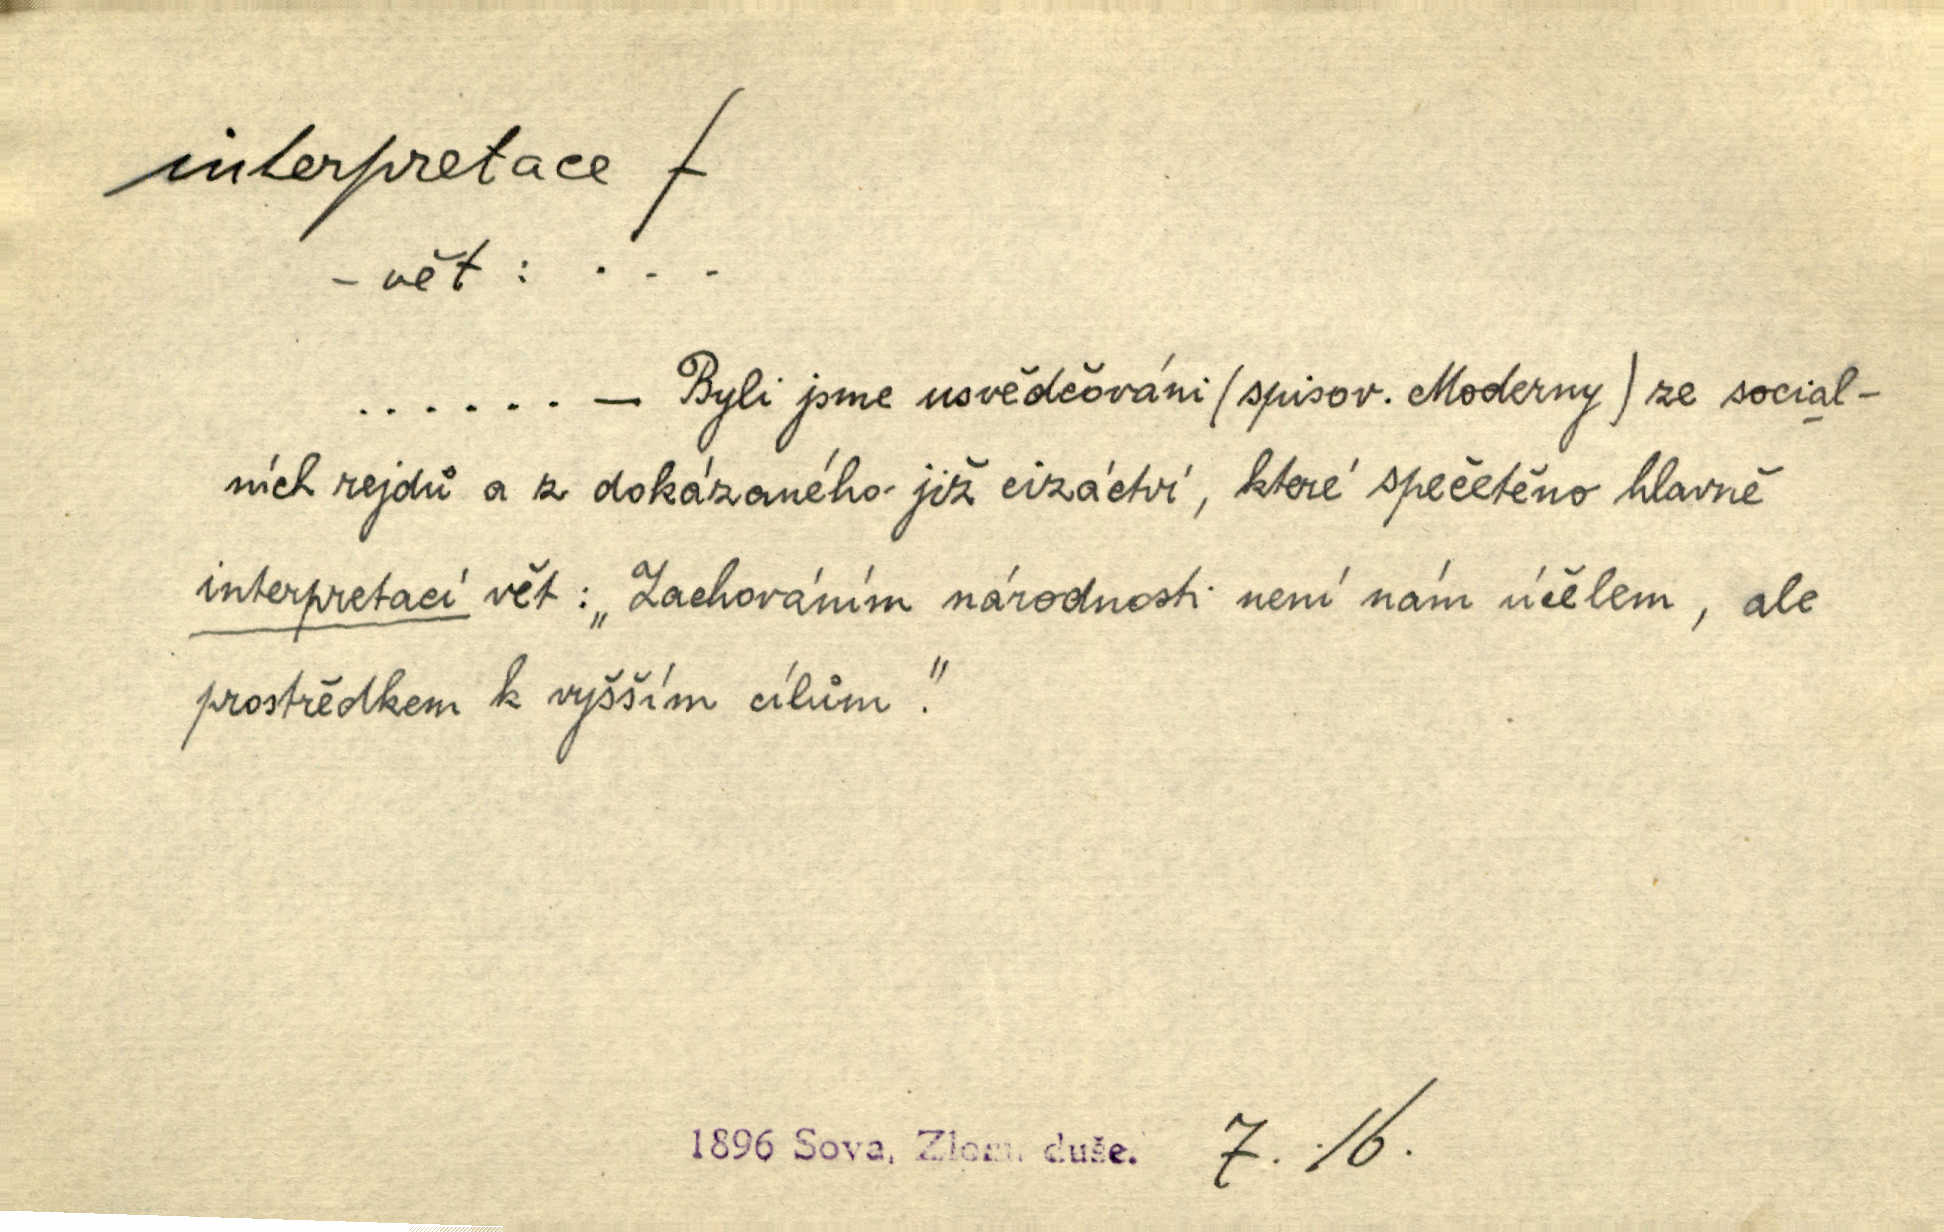 interpretace f
- vět : . - -
. . . . . . — Byli jsme usvědčováni (spisov. Moderny) ze social-
ních rejdů a z dokázaného již cizáctví, které spečetěno hlavně
interpretací vět : „Zachováním národnosti není nám účelem, ale
prostředkem k vyšším cílům."
1896 Sova, Zlom. duše. 7. 16.